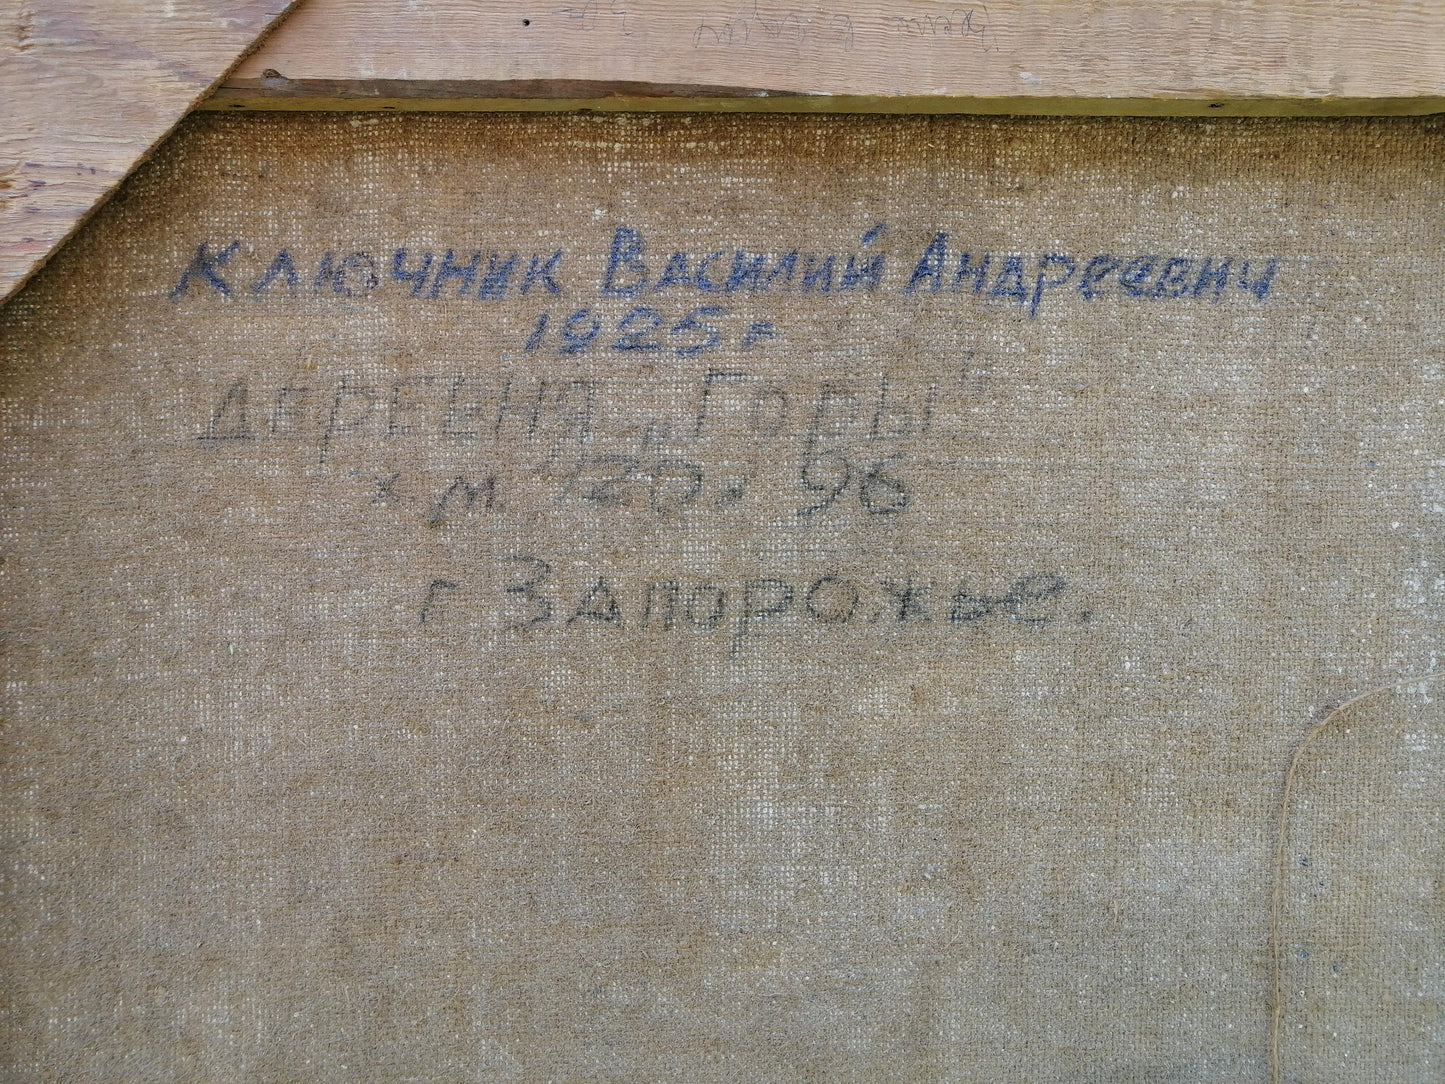 Ключник Василий Андреевич
1925 г
деревня „Горы"
х.м 120 х 96
г Запорожье.